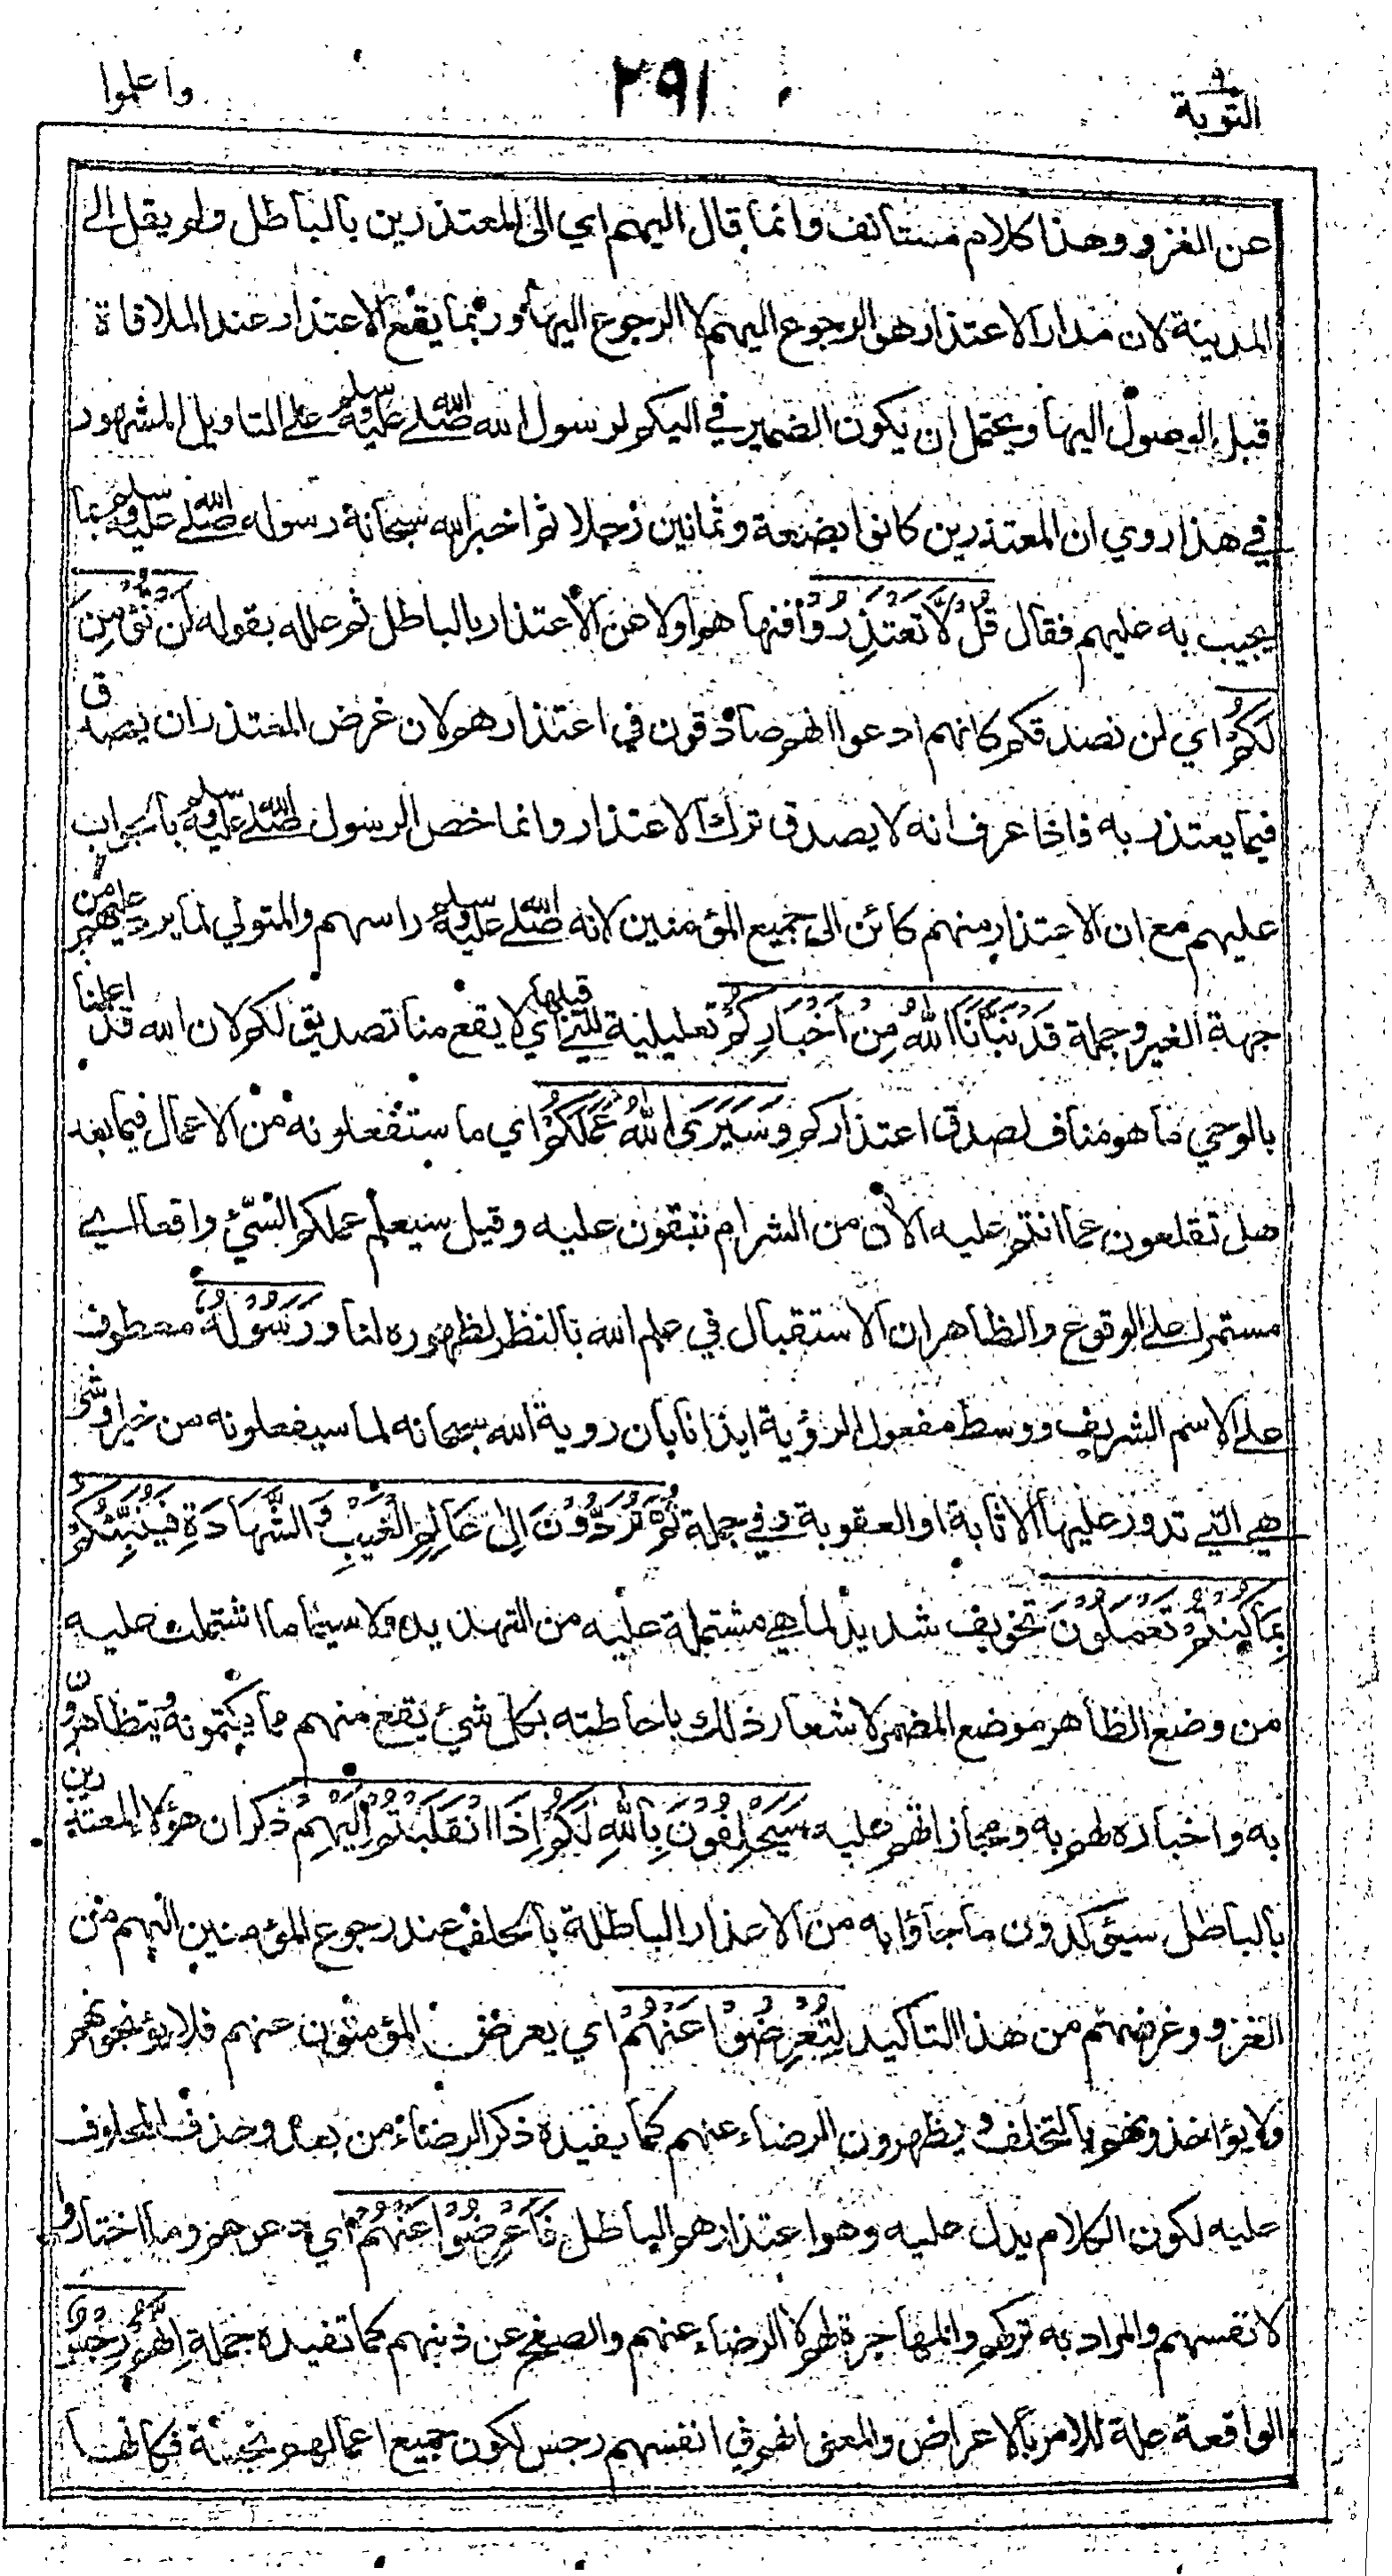 التوبة ٩
٢٩١
واعلموا
عن الغزو وهذا كلام مستأنف وانما قال اليهم اي الى المعتذرين بالباطل ولم يقل الى
المدينة لان مدار الاعتذار هو الرجوع اليهم لا الرجوع اليها وربما يقع الاعتذار عند الملاقاة
قبل الوصول اليها ويحتمل ان يكون الضمير في اليكم لرسول الله صلى الله عليه وسلم على التاويل المشهور
في هذا روي ان المعتذرين كانوا بضعة وثمانين رجلا ثم اخبر الله سبحانه رسوله صلى الله عليه وسلم بما
يجيب به عليهم فقال قُلْ لَّا تَعْتَذِرُوْا فنهاهم اولا عن الاعتذار بالباطل ثم علله بقوله لَنْ نُّؤْمِنَ
لَكُمْ اي لن نصدقكم كانهم ادعوا انهم صادقون في اعتذارهم لان غرض المعتذر ان يصدق
فيما يعتذر به فاذا عرف انه لا يصدق ترك الاعتذار وانما خص الرسول صلى الله عليه وسلم بالجواب
عليهم مع ان الاعتذار منهم كائن الى جميع المؤمنين لانه صلى الله عليه وسلم راسهم والمتولي لما يرد عليهم من
جهة الغير وجملة قَدْ نَبَّأَنَا اللهُ مِنْ أَخْبَارِكُمْ تعليلية للتي قبلها اي لا يقع منا تصديق لكم لان الله قد اعلمنا
بالوحي ما هو مناف لصدق اعتذاركم وَسَيَرَى اللهُ عَمَلَكُمْ اي ما ستفعلونه من الاعمال فيما بعد
هل تقلعون عما انتم عليه الان من الشر ام تبقون عليه وقيل سيعلم عملكم السيّئ واقعا اي
مستمرا على الوقوع والظاهر ان الاستقبال في علم الله بالنظر لظهوره لنا وَرَسُوْلُهُ معطوف
على الاسم الشريف ووسط مفعول الرؤية ايذانا بان روية الله سبحانه لما سيفعلونه من خير او شر
هي التي تدور عليها الاثابة او العقوبة وفي جملة ثُمَّ تُرَدُّوْنَ اِلٰى عَالِمِ الْغَيْبِ وَ الشَّهَادَةِ فَيُنَبِّئُكُمْ
بِمَا كُنْتُمْ تَعْمَلُوْنَ تخويف شديد لما هي مشتملة عليه من التهديد ولا سيما ما اشتملت عليه
من وضع الظاهر موضع المضمر لاشعار ذلك باحاطته بكل شيئ يقع منهم مما يكتمونه ويتظاهرون
به واخباره لهم به ومجازاتهم عليه سَيَحْلِفُوْنَ بِاللهِ لَكُمْ اِذَا انْقَلَبْتُمْ اِلَيْهِمْ ذكر ان هؤلاء المعتذرين
بالباطل سيؤكدون ما جاؤا به من الاعذار الباطلة بالحلف عند رجوع المؤمنين اليهم من
الغزو وغرضهم من هذا التاكيد لِتُعْرِضُوْا عَنْهُمْ اي يعرض المؤمنون عنهم فلا يؤبخونهم
ولا يؤاخذونهم بالتخلف ويظهرون الرضاء عنهم كما يفيده ذكر الرضاء من بعد وحذف المحلوف
عليه لكون الكلام يدل عليه وهو اعتذارهم الباطل فَأَعْرِضُوْا عَنْهُمْ اي دعوهم وما اختاروا
لانفسهم والمراد به تركهم والمهاجرة لهم لا الرضاء عنهم والصفح عن ذنبهم كما تفيده جملة اِنَّهُمْ رِجْسٌ
الواقعة علة للامر بالاعراض والمعنى انهم في انفسهم رجس لكون جميع اعمالهم نجسة فكانها